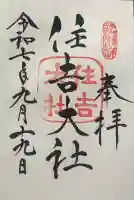 奉拝
住吉大社
住吉
大社
令和年九月十九日